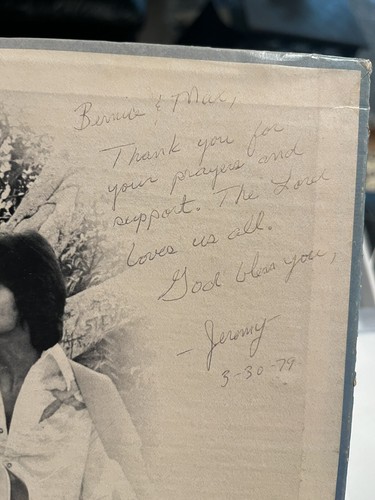 Bernice & Mac,
Thank you for
your prayers and
support. The Lord
loves us all.
God bless you,
- Jeremy -
3-30-79